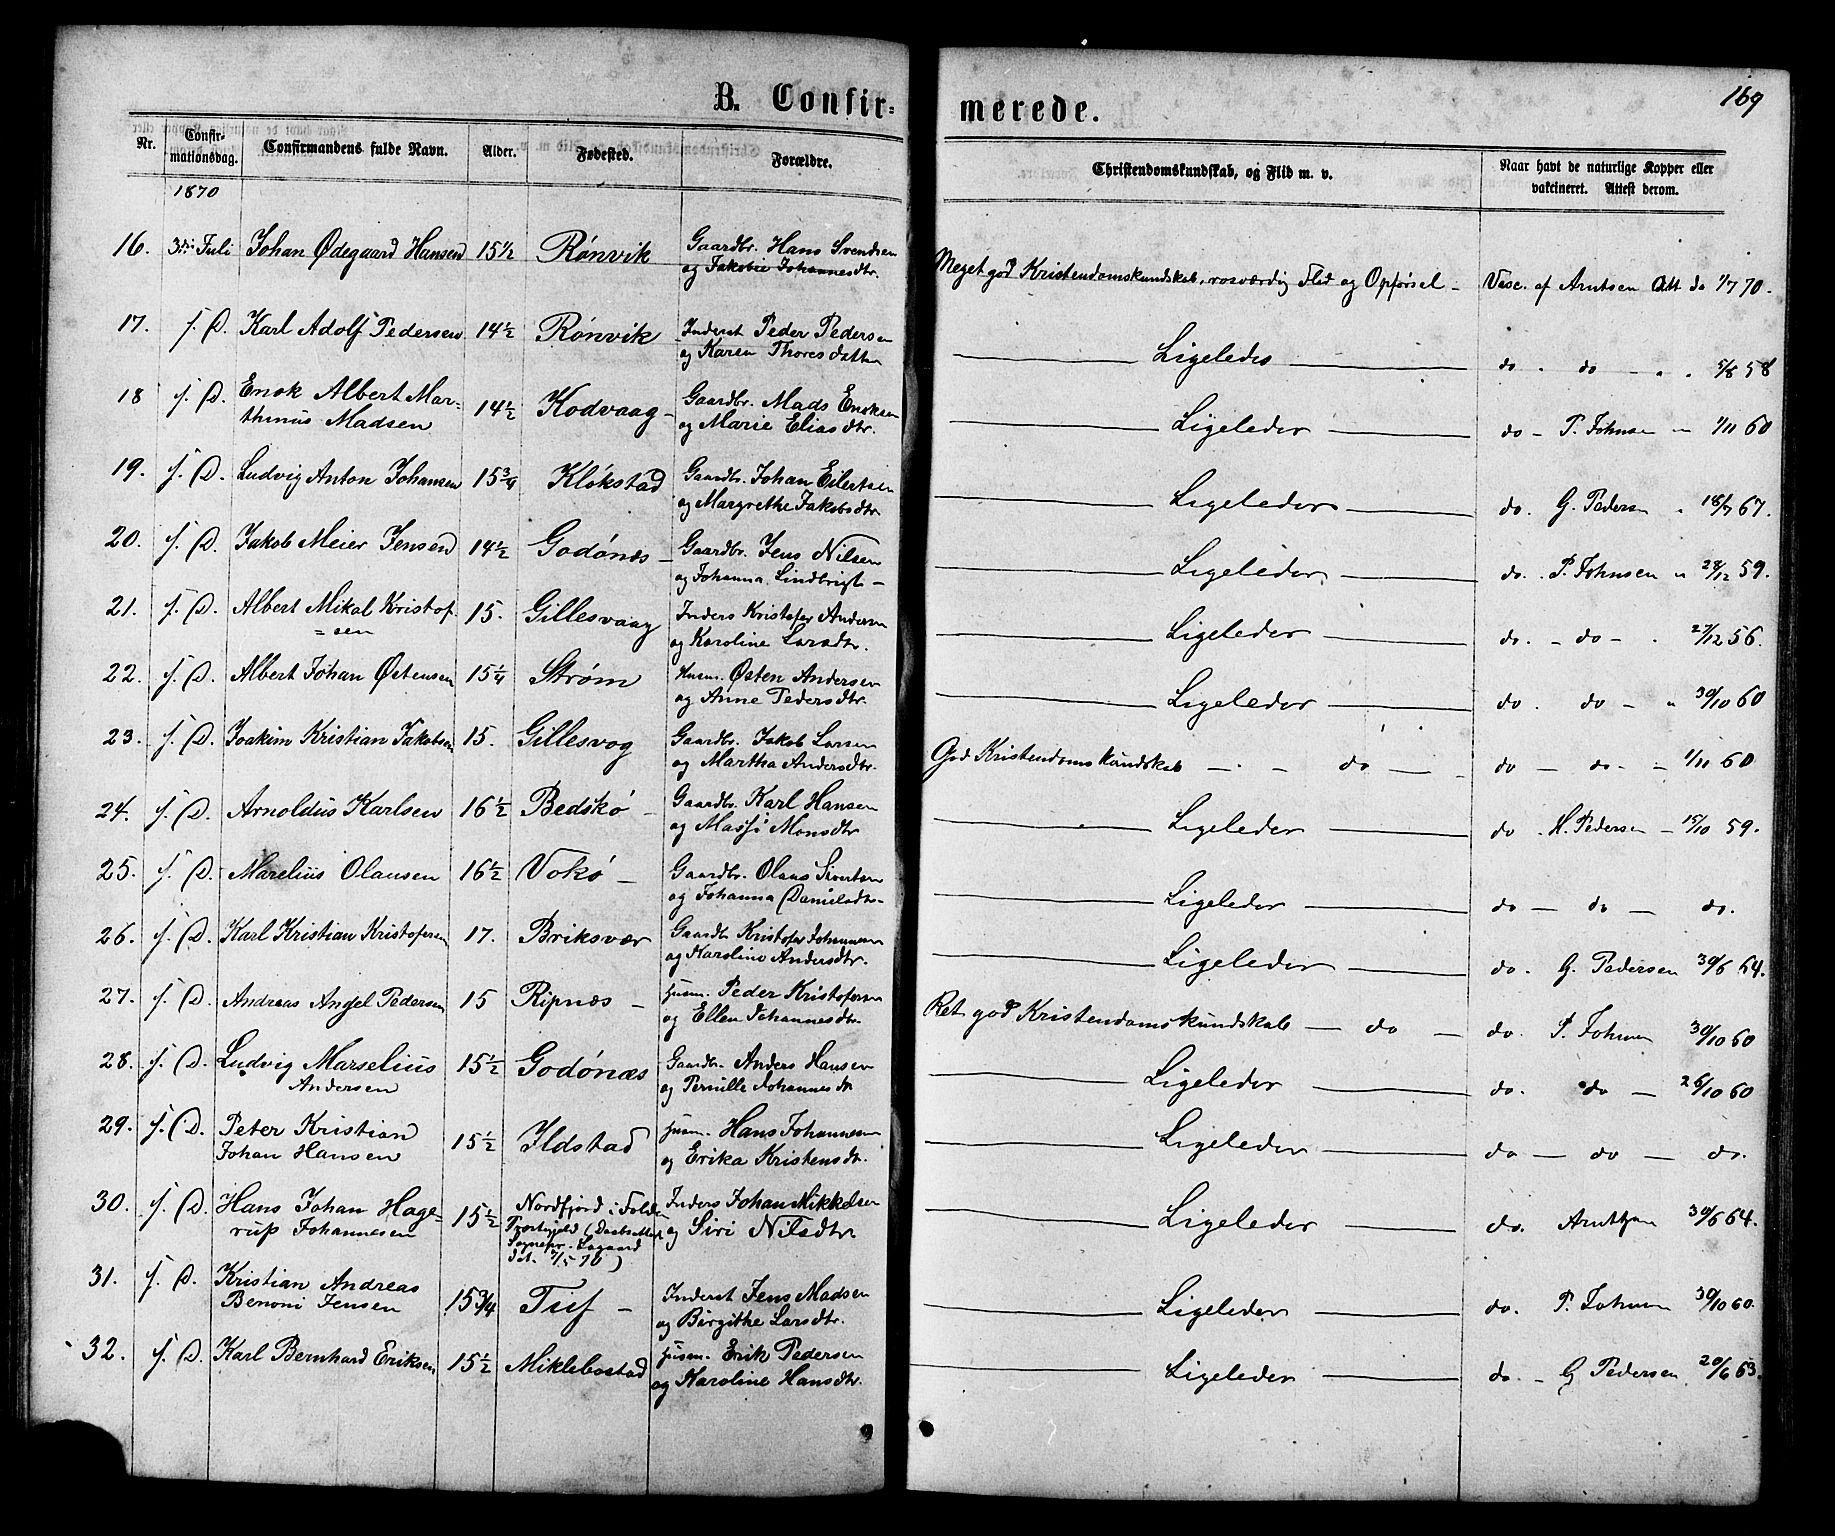 B. Confir-
merede.
169
Nr.
Confir-
mationsdag.
Confirmandens fulde Navn.
Alder.
Fødested.
Forældre.
Christendomskundskab, og Flid m. v.
Naar havt de naturlige Kopper eller
vakcineret. Attest derom.
1870
16. 3die Juli Johan Ødegaard Hansen 15 1/2 Rønvik Gaardbr. Hans Svendsen
og Jakobie Johannesdtr.
Meget god Kristendomskundskab, rosværdig Flid og Opførsel - Vacc. af Arntsen Att do 1/7 70.
17. s. D. Karl Adolf Pedersen 14 1/2 Rønvik Inderst Peder Pedersen
og Karen Thoresdatter
Ligeledes do. do - " 5/8 58
18 s. D. Enok Albert Mar-
thinus Madsen 14 1/2 Kodvaag - Gaardbr. Mads Enoksen
og Marie Eliasdtr.
Ligeleder do - P. Johnsen " 1/11 60
19. s. D. Ludvig Anton Johansen 15 3/4 Kløkstad Gaardbr. Johan Eilertsen
og Margrethe Jakobsdtr
Ligeleder do. G. Pedersen " 18/7 67.
20. s. D. Jakob Meier Jensen 14 1/2 Godønes - Gaardbr. Jens Nilsen
og Johanna Lindbrigt -
Ligeleder. do. P. Johnsen " 28/12 59.
21. s. D. Albert Mikal Kristof-
=sen 15. Gillesvaag Inders Kristofer Andersen
og Karoline Larsdtr.
Ligeleder do. - do - . 27/12 56.
22. s. D. Albert Johan Østensen 15 1/4 Strøm Husm. Østen Andersen
og Anne Pedersdtr.
Ligeleder do. do - " 30/10 60
23. s. D. Joakim Kristian Jakobsen 15. Gillesvog Gaardbr. Jakob Larsen
og Martha Andersdtr.
God Kristendomskundskab - . - do - - do - do - - 1/11 60
24. s. D. Arnoldus Karlsen 16 1/2 Bedskø - Gaardbr. Karl Hansen
og Massi Monsdtr
Ligeleder do. H. Pedersen - 15/10 59.
25. s. D. Marelius Olausen 16 1/2 Vokø - Gaardbr. Olaus Sivertsen
og Johanna Danielsdtr-
Ligeleder do - do - do.
26. s. D. Karl Kristian Kristofersen 17. Briksvær Gaardb. Kristofer Johannesen
og Karoline Andersdtr.
Ligeleder do. G. Pedersen 30/6 64.
27. s. D. Andreas Angel Pedersen 15 Ripnæs - Husm. Peder Kristofersen
og Ellen Johannesdtr.
Ret god Kristendomskundskab - do - do. P. Johnsen 30/10 60
28. s. D. Ludvig Marselius
Andersen 15 1/2 Godønæs Gaardbr. Anders Hansen
og Pernille Johannesdtr
Ligeleder do. do - 26/10 60
29. s. D. Peter Kristian
Johan Hansen 15 1/2 Ildstad Husm. Hans Johannesen
og Erika Kristensdtr.
Ligeleder do - do - do.
30. s. D. Hans Johan Hage-
rup Johannesen 15 1/2 Nordfjord i Folden
Præstegjeld (Daabsattest
Sognepr. Aagaard
dat. 2/5 70) Inders Johan Mikkelsen
og Siri Nilsdtr
Ligeleder do. Arntzen 30/6 64.
31. s. D. Kristian Andreas
Benoni Jensen 15 3/4 Tuf - Inderst Jens Madsen
og Birgithe Larsdtr.
Ligeleder do. P. Johnsen 30/10 60.
32. s. D. Karl Bernhard Eriksen 15 1/2 Miklebostad Husm. Erik Pedersen
og Karoline Hansdtr.
Ligeleder do. - G Pedersen 20/6 63.